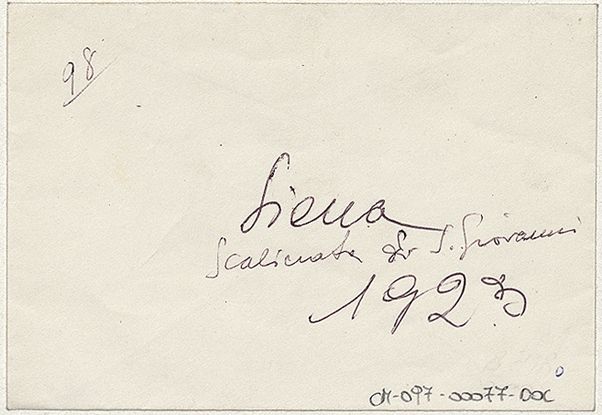 98
Siena
Scalinata di S. Giovanni
1923
CM-097-00077-DOC